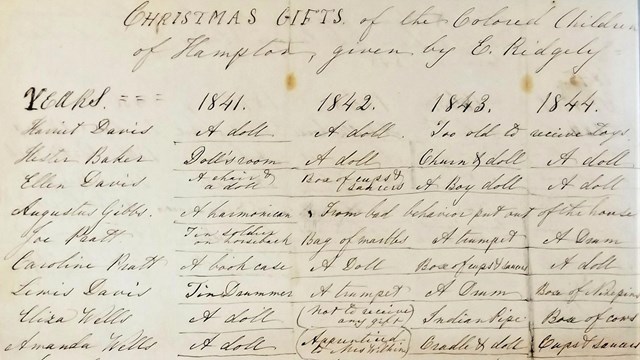 CHRISTMAS GIFTS. of the Colored Children
of Hampton, given by E. Ridgely
YEARS. = = = 1841. 1842. 1843. 1844.
Harriet Davis A doll A doll. Too old to receive Toys
Hester Baker Doll's room A doll Churn & doll A doll
Ellen Davis A chair & a doll Box of cups & saucers A Boy doll A doll
Augustus Gibbs. A harmonican From bad behavior put out of the house
Joe Pratt Tin soldier on horseback Bag of marbles A trumpet A Drum
Caroline Pratt A book case A Doll Box of cups & saucers A doll
Lewis Davis Tin Drummer A trumpet A Drum Box of
Eliza Wells A doll (Not to receive any gift) Indian Pipe Box of cows
Amanda Wells A doll (Apprenticed to Mis) Cradle & doll Cups & saucers